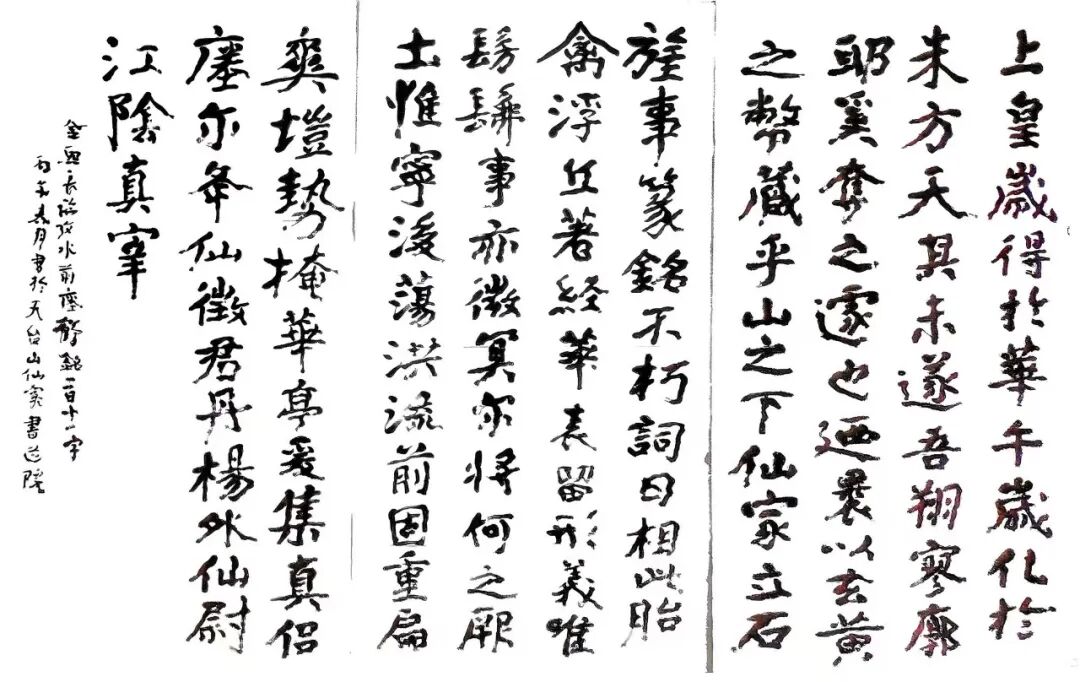 上皇歲得於華午歲化於
朱方天其未遂吾翔寥廓
耶奚奪之遽也迺裹以玄黃
之幣藏乎山之下仙家立石
旌事篆銘不朽詞曰相此胎
禽浮丘著經華表留形義唯
髣髴事亦微冥尔將何之厥
土惟寧後蕩洪流前固重扃
爽塏勢掩華亭爰集真侶
瘞尔年仙徵君丹楊外仙尉
江陰真宰
水前瘞鶴銘一百十一字
丙午春月書於天台山仙窟書道院